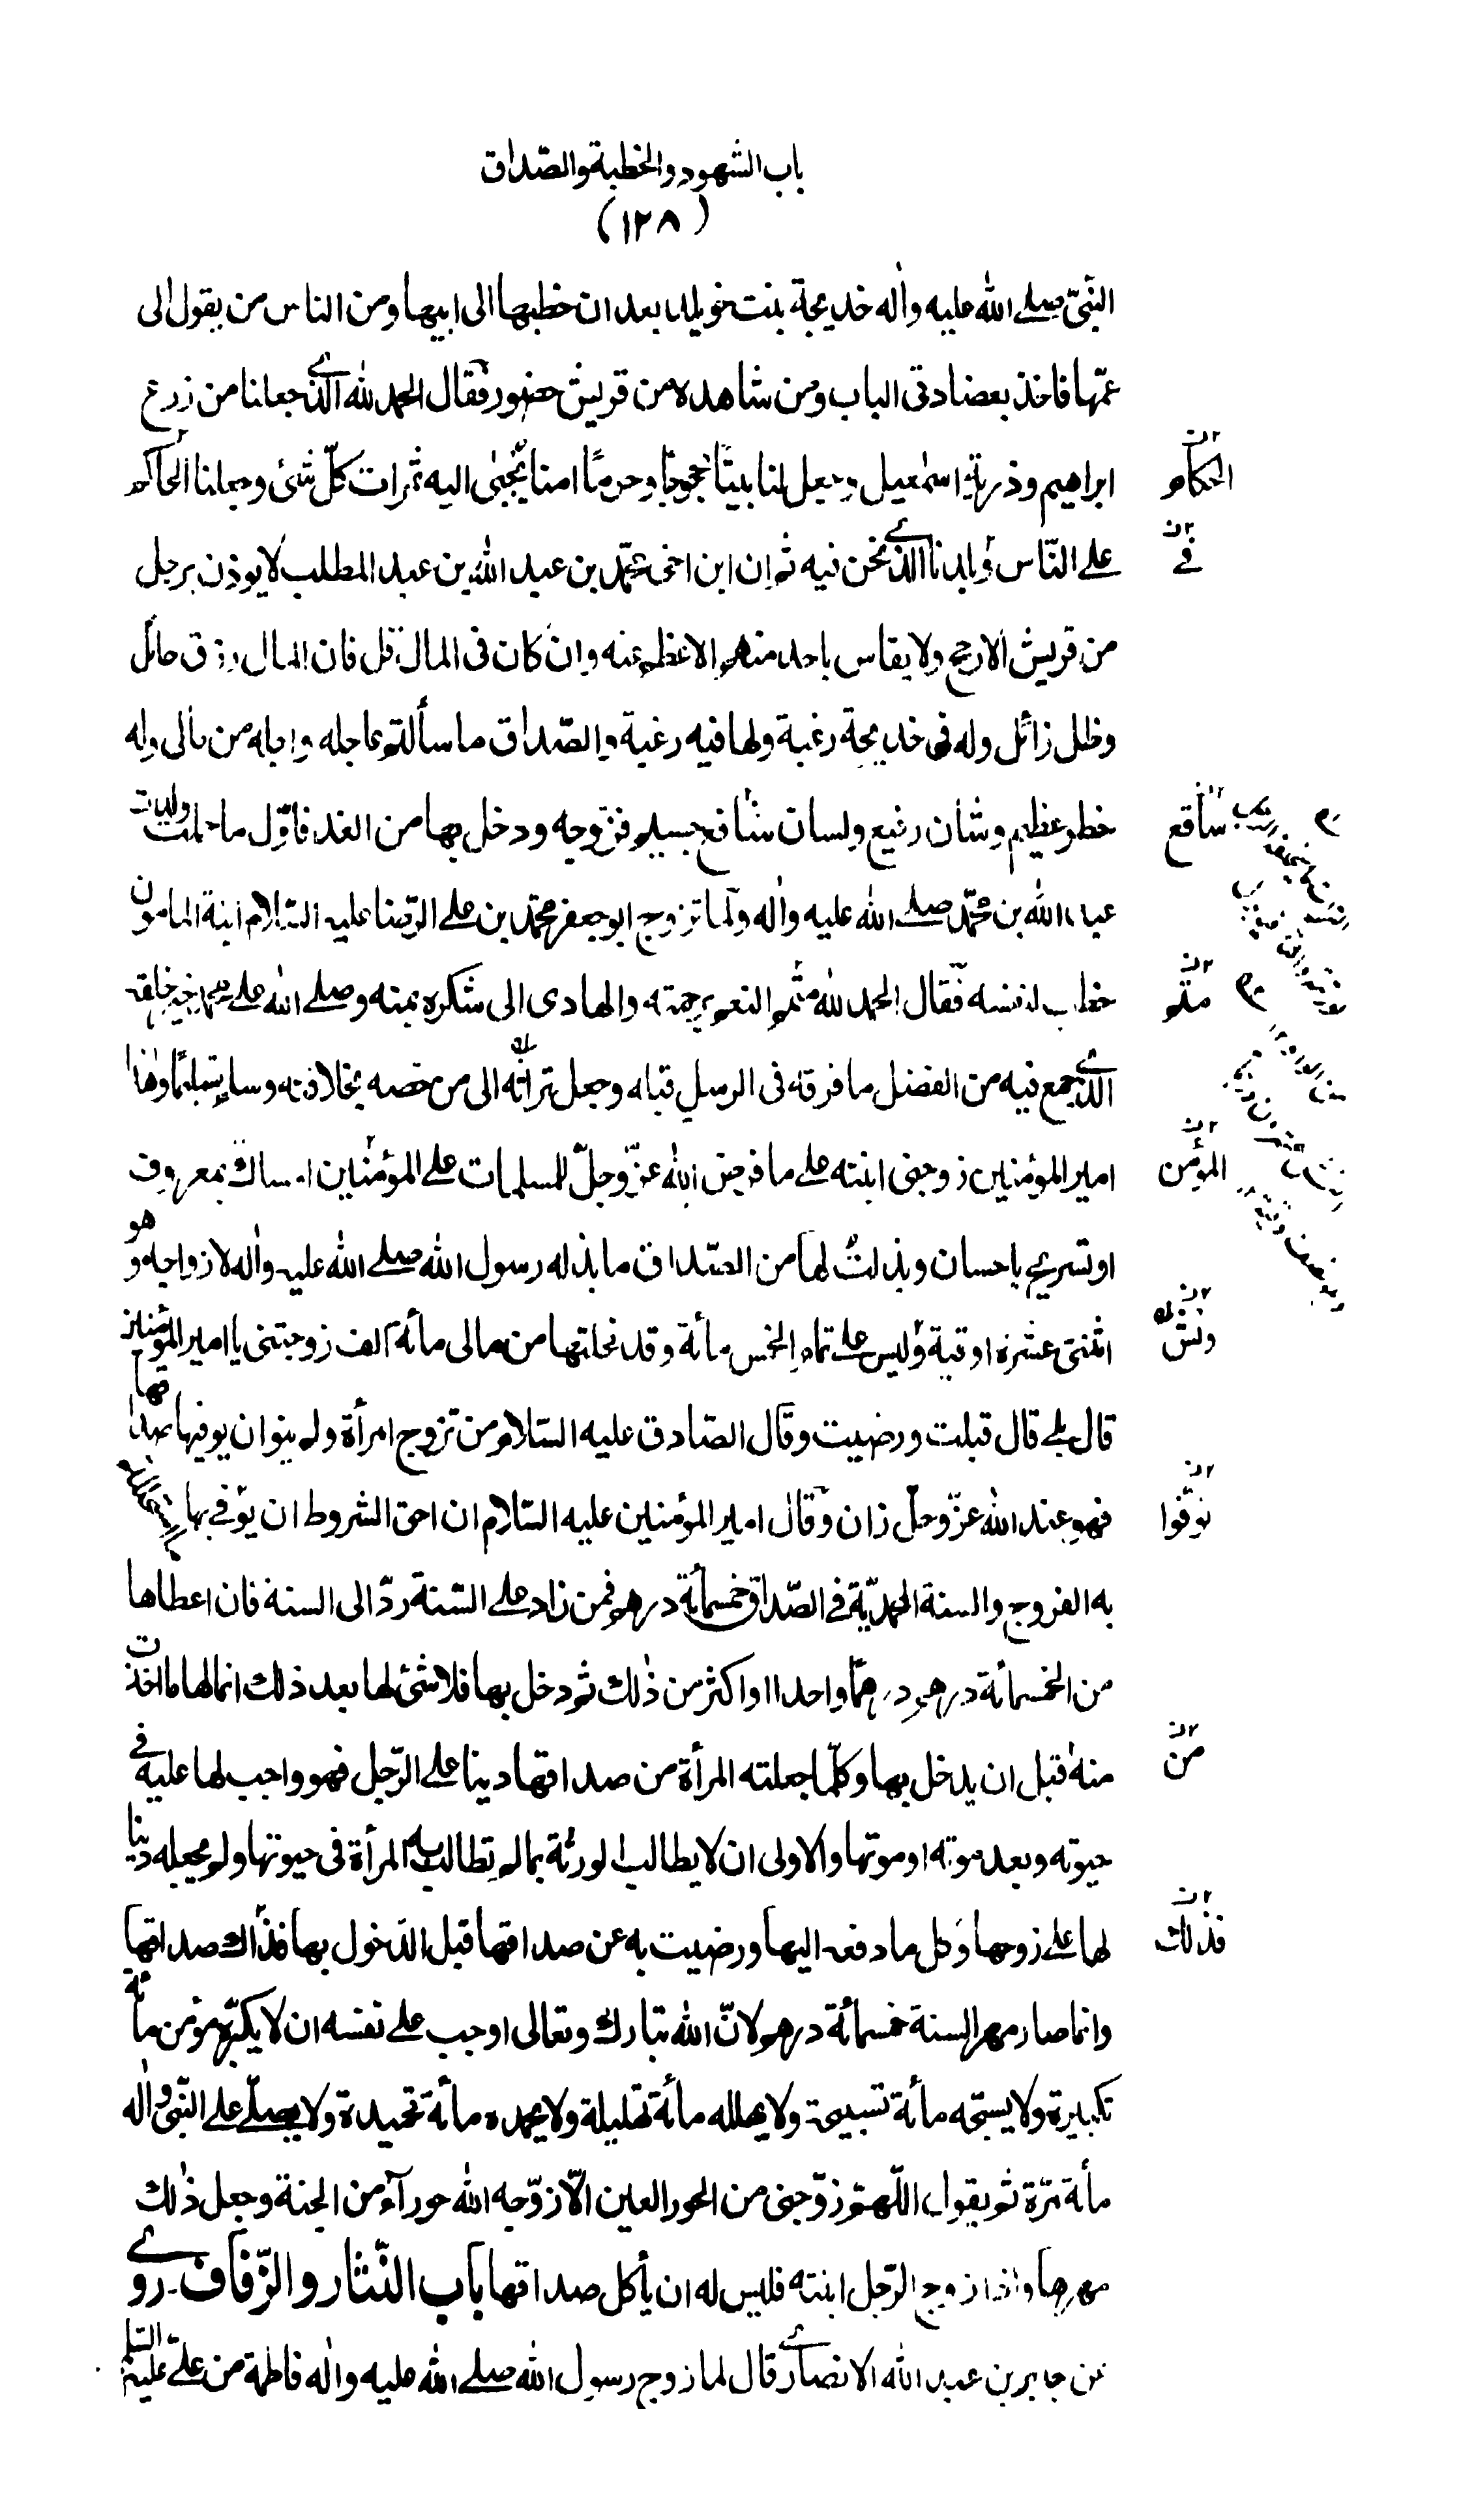 باب الشهود والخطبة والصّداق
(١٢٨)
النبيّ صلى الله عليه واٰله خديجة بنت خويلد بعد ان خطبها الى ابيها ومن الناس من يقول الى
عمّها فاخذ بعضادتى الباب ومن شاهده من قريش حضور فقال الحمد لله الذى جعلنا من زرع
ابراهيم وذرية اسمٰعيل وجعل لنا بيتًا محجوجًا وحرمًا امنا يُجبىٰ اليه ثمرات كلّ شئ وجعلنا الحاكم
الحكام
على النّاس فى بلدنا الذى نحن فيه ثم ان ابن اخى محمّد بن عبد الله بن عبد المطلب لا يوذن برجل
فى
من قريش الا رجح ولا يقاس باحد منهم الا عظم عنه وان كان فى المال قل فان المال رزق حائل
وظل زائل وله فى خديجة رغبة ولها فيه رغبة والصّداق ما سألتم عاجله واجله من مالى وله
خطر عظيم وشان رفيع ولسان شافع جسيم فزوجه ودخل بها من الغد فاوّل ما حملت ولدت
ساقع
عبد الله بن محمّد صلى الله عليه واٰله ولما تزوج ابو جعفر محمّد بن على الرّضا عليه السّلام ابنة المامون
خطب لنفسه فقال الحمد لله متمم النعم برحمته والهادى الى شكره بمنه وصلى الله على محمد خير خلقه
متمّ
الذى جمع فيه من الفضل ما فرقه فى الرسل قبله وجعل تراثه الى من خصه بخلافته وسلم تسليمًا وهٰذا
امير المؤمنين زوجنى ابنته على ما فرض الله عزّ وجلّ للمسلمات على المؤمنين امساك بمعروف
المؤمن
او تسريح باحسان وبذلت لها من الصّداق ما بذله رسول الله صلى الله عليه واٰله لازواجه وهو
اثنتى عشرة اوقية وليس على تمام الخمس مأة وقد نحلتها من مالى مأة الف زوجتنى يا امير المؤمنين
ونش
قال بلى قال قبلت ورضيت وقال الصّادق عليه السّلام من تزوج امرأة ولم ينو ان يوفيها صداقها
فهو عند الله عزّ وجلّ زان وقال امير المؤمنين عليه السّلام ان احق الشروط ان يوفى بها ما استحللتم
توفوا
به الفروج والسنة المحمديّة فى الصّداق خمسمأة درهم فمن زاد على السّنة ردّ الى السنة فان اعطاها
من الخمسمأة درهم درهمًا واحدا او اكثر من ذٰلك ثم دخل بها فلا شئ لها بعد ذٰلك انما لها ما اخذت
منه قبل ان يدخل بها وكلّما جعلته المرأة من صداقها دينا على الرّجل فهو واجب لها عليه فى
من
حيوته وبعد موته او موتها والاولى ان لا يطالب الورثة بما لم تطالب به المرأة فى حيوتها ولم يجعله دينا
لها على زوجها وكل ما دفعه اليها ورضيت به عن صداقها قبل الدخول بها فذاك صداقها
فذلك
وانما صار مهر السنة خمسمأة درهم لانّ الله تبارك وتعالى اوجب على نفسه ان لا يكبّره مؤمن مأة
تكبيرة ولا يسبّحه مأة تسبيحة ولا يهلله مأة تهليلة ولا يحمده مأة تحميدة ولا يصلّى على النّبى واٰله
مأة مرّة ثم يقول اللّهمّ زوّجنى من الحور العين الّا زوّجه الله حورآء من الجنة وجعل ذٰلك
مهرها واذا زوج الرّجل ابنته فليس له ان يأكل صداقها باب النّثار والزّفاف۔ روى
عن جابر بن عبد الله الانصارى قال لما زوج رسول الله صلى الله عليه واٰله فاطمة من علىّ عليه السّلم